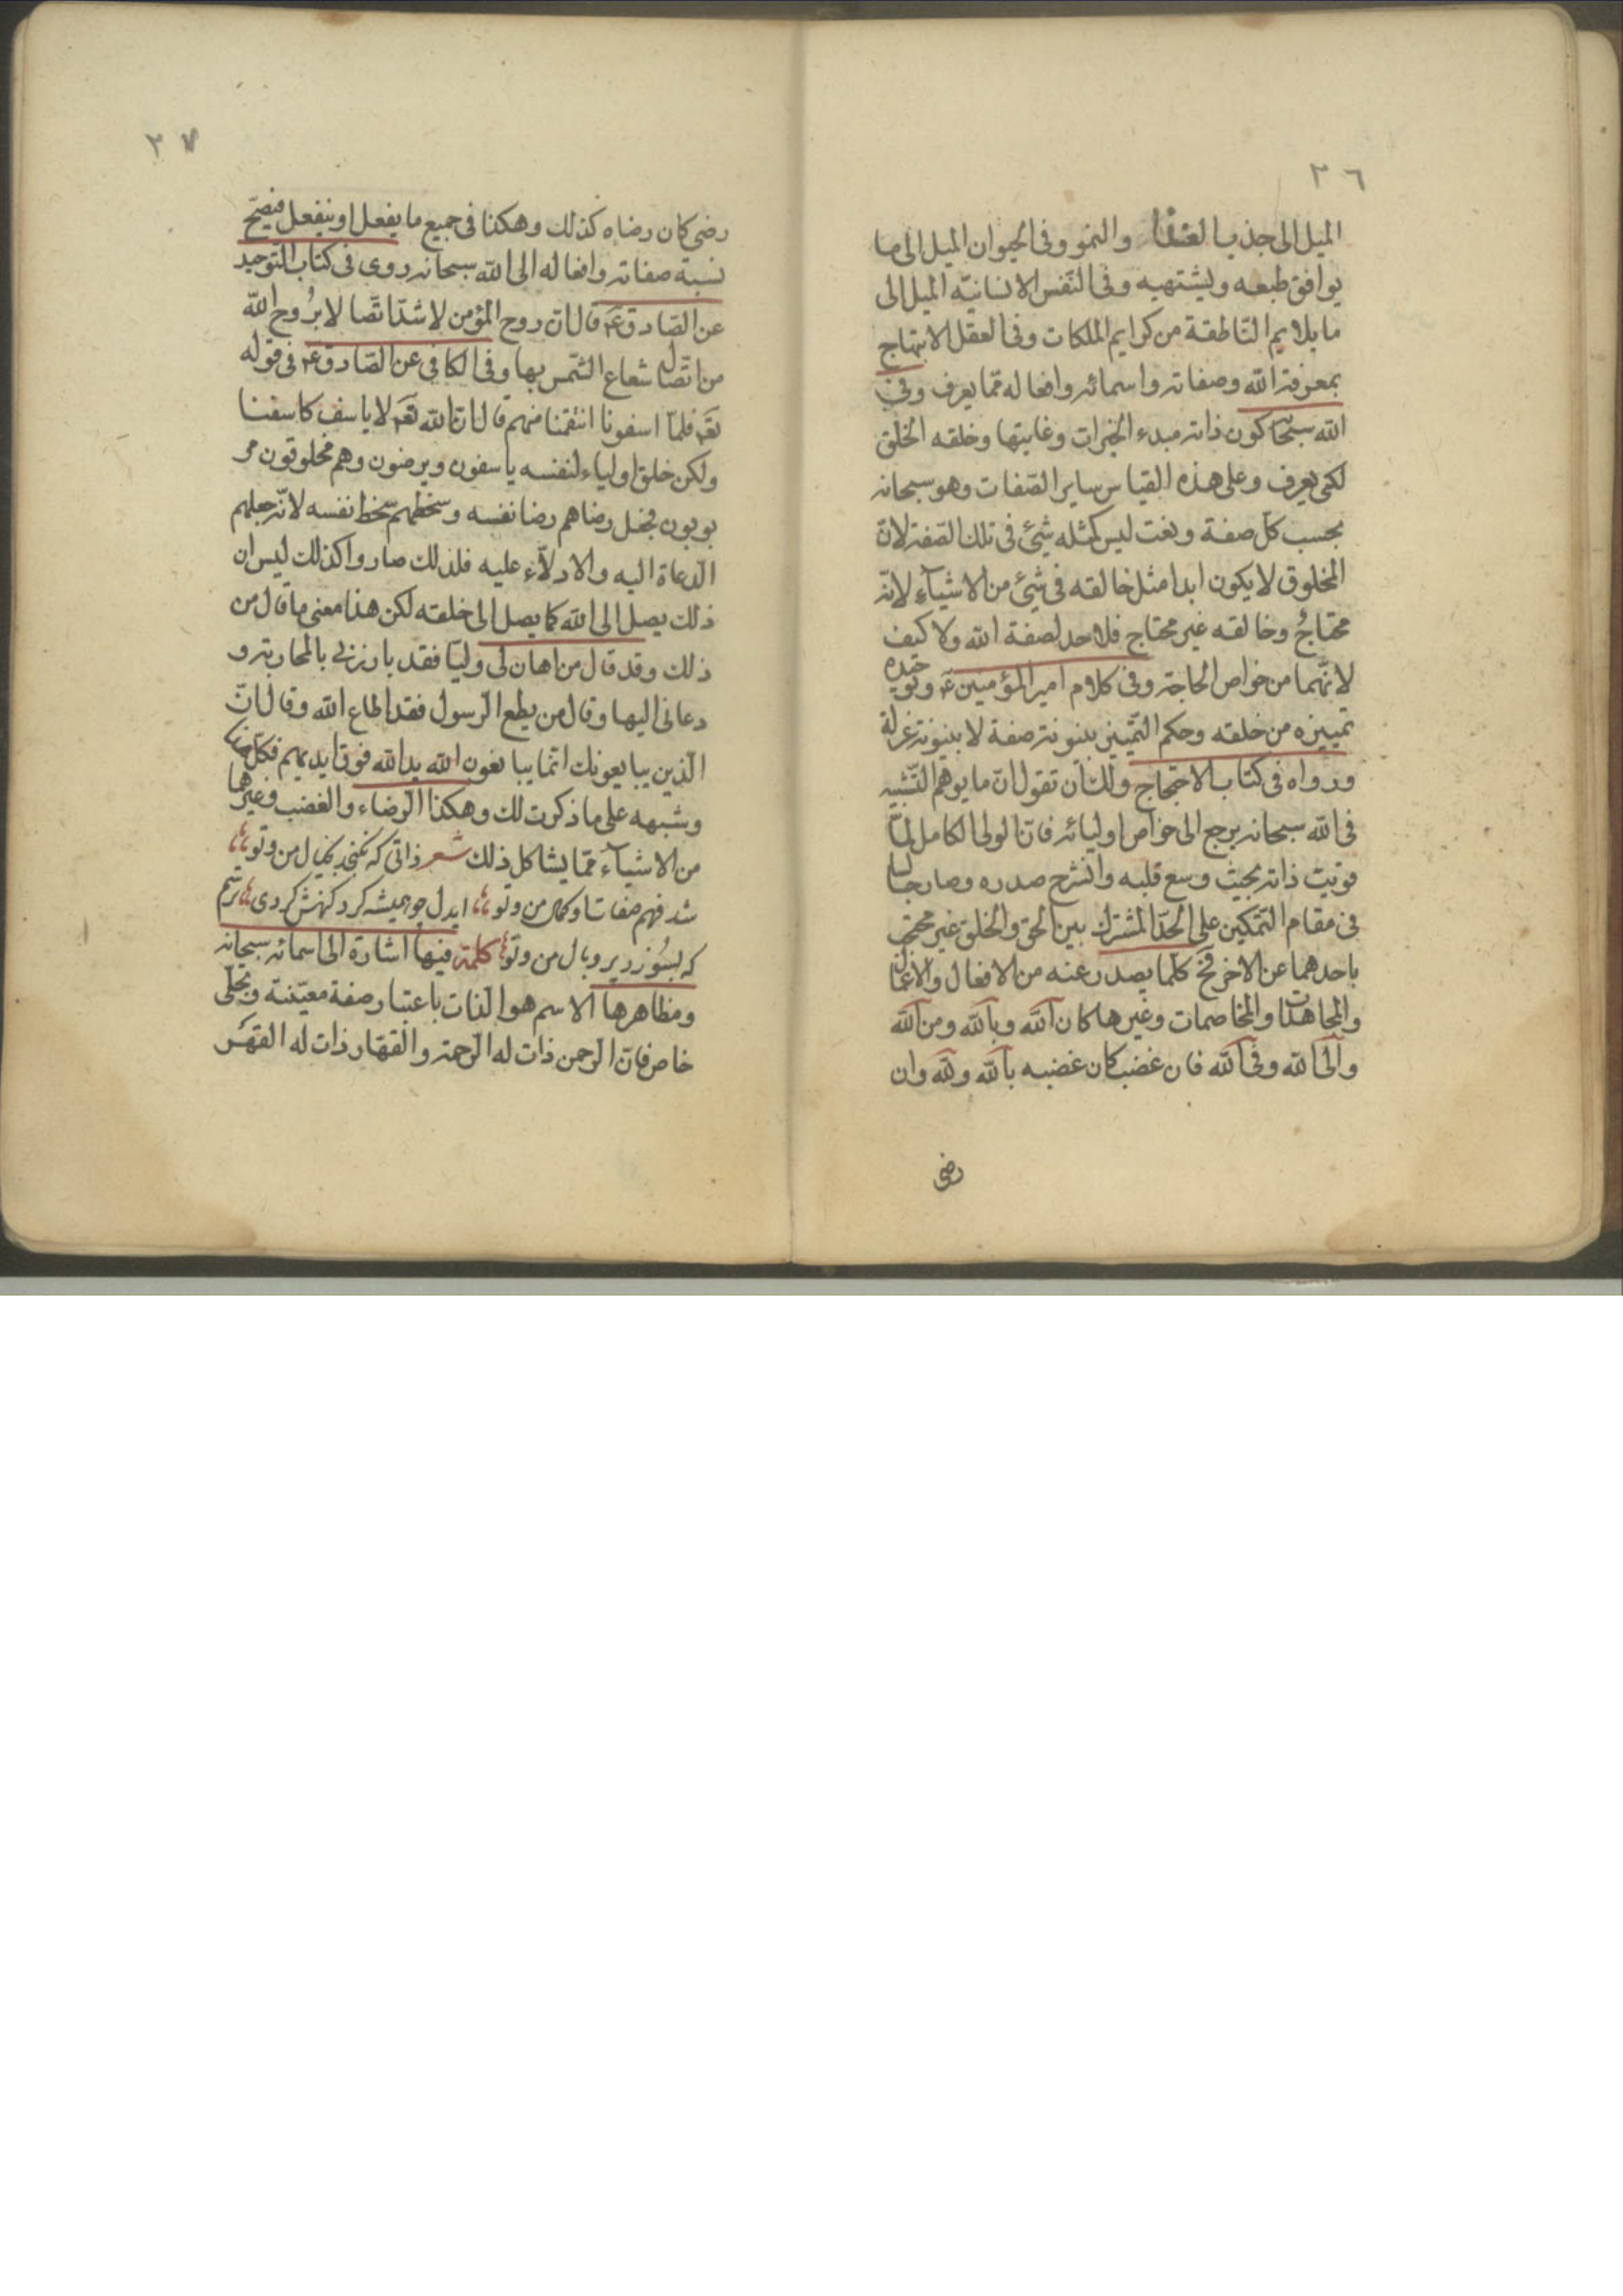 ٣٦
الميل الى جذب الغذاء والنمو وفى الحيوان الميل الى ما
يوافق طبعه ويشتهيه وفى النّفس الانسانيّه الميل الى
ما يلايم النّاطقة من كرايم الملكات وفى العقل الابتهاج
بمعرفة الله وصفاته واسمائه وافعاله ممّا يعرف وفى
الله سبحانه كون ذاته مبدء الخيرات وغايتها وخلقه الخلق
لكى يعرف وعلى هذه القياس ساير الصّفات وهو سبحانه
بحسب كلّ صفة ونعت ليس كمثله شئ فى تلك الصّفة لانّ
المخلوق لا يكون ابدا مثل خالقه فى شئ من الاشياء لانّه
محتاج وخالقه غير محتاج فلا حد لصفة الله ولا كيف
لانّهما من خواص الحاجة وفى كلام امير المؤمنين ع وتوحيده
تمييزه من خلقه وحكم التّمييز بينونة صفة لا بينونة عزلة
ورواه فى كتاب الاحتجاج ولك ان تقول انّ ما يوهم التّشبيه
فى الله سبحانه يرجع الى خواص اوليائه فانّ الولى الكامل لمّا
قويت ذاته بحيث وسع قلبه وانشرح صدره وصار جالسا
فى مقام التّمكين على الحدّ المشترك بين الحق والخلق غير محتجب
باحدهما عن الاخر فح كلّما يصدر عنه من الافعال والاعمال
والمجاهدات والمخاصمات وغيرها كان لله وبالله ومن الله
والى الله وفى الله فان غضب كان غضبه بالله ولله وان
رضى
٣٧
رضى كان رضاه كذلك وهكذا فى جميع ما يفعل او ينفعل فيصحّ
نسبة صفاته وافعاله الى الله سبحانه روى فى كتاب التوحيد
عن الصّادق ع قال انّ روح المؤمن لاشدّ اتّصالا بروح الله
من اتّصال شعاع الشّمس بها وفى الكافى عن الصّادق ع فى قوله
تعَ فلمّا اسفونا انتقمنا منهم قال انّ الله تعَ لا ياسف كاسفنا
ولكن خلق اولياء لنفسه ياسفون ويرضون وهم مخلوقون مر
بوبون فجعل رضاهم رضا نفسه وسخطهم سخط نفسه لانّه جعلهم
الدّعاة اليه والادلّاء عليه فلذلك صاروا كذلك ليس ان
ذلك يصل الى الله كما يصل الى خلقه لكن هذا معنى ما قال من
ذلك وقد قال من اهان لى وليّا فقد بارزنى بالمحاربة و
دعانى اليها وقال من يطع الرّسول فقد اطاع الله وقال انّ
الّذين يبايعونك انّما يبايعون الله يد الله فوق ايديهم فكلّ هذا
وشبهه على ما ذكرت لك وهكذا الرّضاء والغضب وغيرهما
من الاشياء ممّا يشاكل ذلك شعر ذاتى كه نگنجد بخيال من وتو
شد فهم صفات او كمال من وتو ايدل چو هميشه كرد كنهش كردى ترسم
كه بسوزد پر وبال من وتو كلمة فيها اشارة الى اسمائه سبحانه
ومظاهرها الاسم هو الذّات باعتبار صفة معيّنة وتجلّى
خاص فانّ الرّحمن ذات له الرّحمة والقهّار ذات له القهر